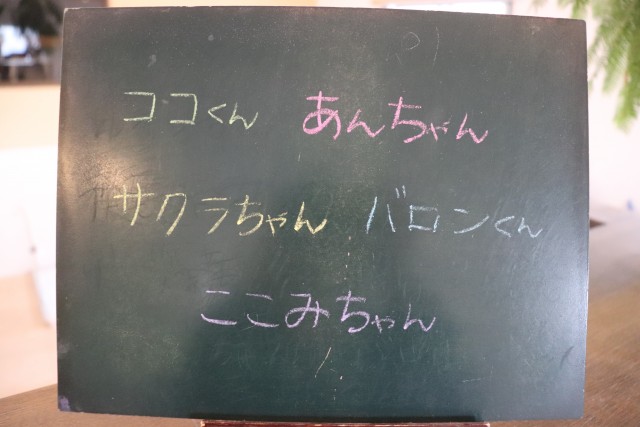 ココくん あんちゃん
サクラちゃん バロンくん
ここみちゃん